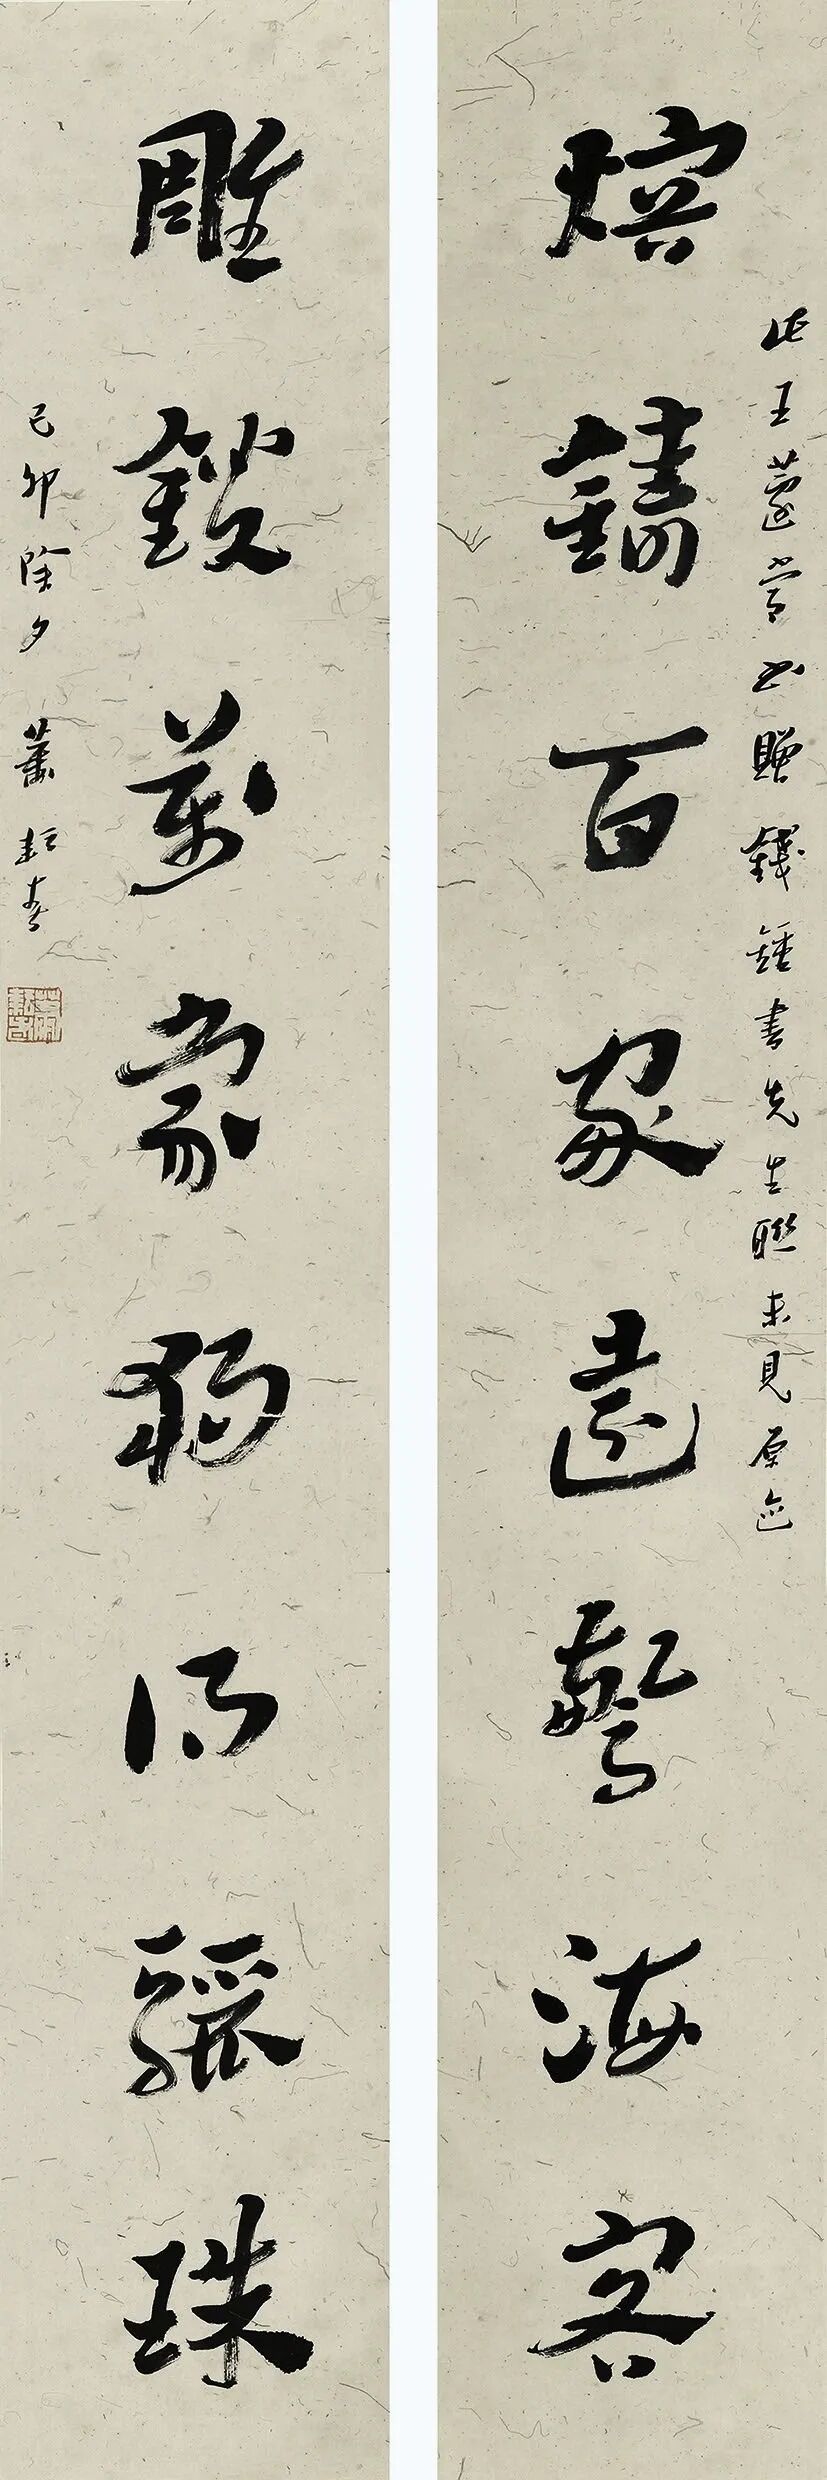 此王蘧常书贈錢鍾書先生聯未見原迹
熔鑄百家遠驚海客
雕鎪萬象獨得驪珠
己卯除夕 蕭耘春